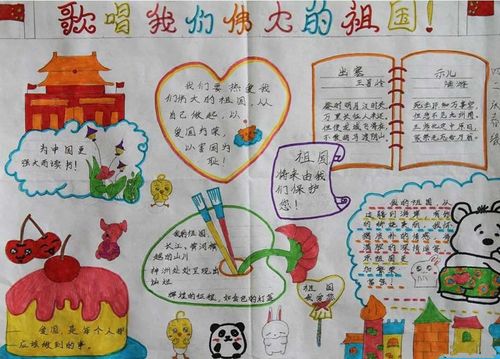 歌唱我们伟大的祖国!
为中国更
强大而读书!
我们要热爱我
们伟大的祖国,从
自己做起,以
爱国为荣,
以害国为
耻!
出塞
王昌龄
秦时明月汉时关
万里长征人未还
但使龙城飞将在
不教胡马渡阴山
示儿
陆游
死去元知万事空
但悲不见九州同
王师北定中原日
家祭无忘告乃翁
祖国
将来由我
们保护
您!
我的祖国
长江,黄河,
越的山川
神州处处呈现出
灿烂
辉煌的征程,如金色的灯盏
祖国
我爱您
我的祖国,从
爱国,是每个人都
应该做到的事。